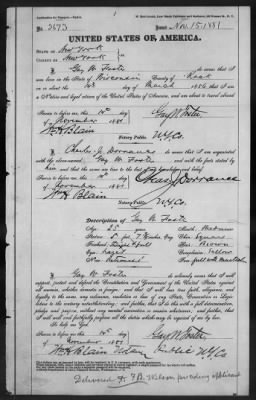 No. 3673 Issued Nov. 15, 1881
UNITED STATES OF AMERICA.
STATE OF New York
COUNTY OF New York
I, Guy W. Foote do swear that I
was born in the State of Wisconsin County of Rock
on or about the 14th day of March 1856 that I am
a Native and loyal citizen of the United States of America, and am about to travel abroad
Sworn to before me, this 14th day
of November 1881 Guy W. Foote
W. H. Blain
Notary Public N.Y.Co.
I, Charles J. Dorrance do swear that I am acquainted
with the above-named Guy W. Foote and with the facts stated by
him and that the same are true to the best of my knowledge and belief
Sworn to before me, this 14th day
of November 1881 Chas. J. Dorrance
W. H. Blain
Notary Public N.Y.Co.
Description of Guy W. Foote
Age: 25 years Mouth: Medium
Stature: 5 feet 7 inches Eng. Chin: Square
Forehead: Hair: Brown
Eyes: Hazel Complexion: Sallow
Nose: Face:
I, Guy W. Foote do solemnly swear that I will
support, protect and defend the Constitution and Government of the United States against
all enemies, whether domestic or foreign; and that I will bear true faith, allegiance, and
loyalty to the same, any ordinance, resolution or law of any State, Convention or Legis-
lature to the contrary notwithstanding; and further, that I do this with a full determination,
pledge and purpose, without any mental reservation or evasion whatsoever; and further, that
I will well and faithfully perform all the duties which may be required of me by law.
So help me God.
Sworn to before me, this 14th day
of November 1881 Guy W. Foote
W. H. Blain Notary Public N.Y.Co.